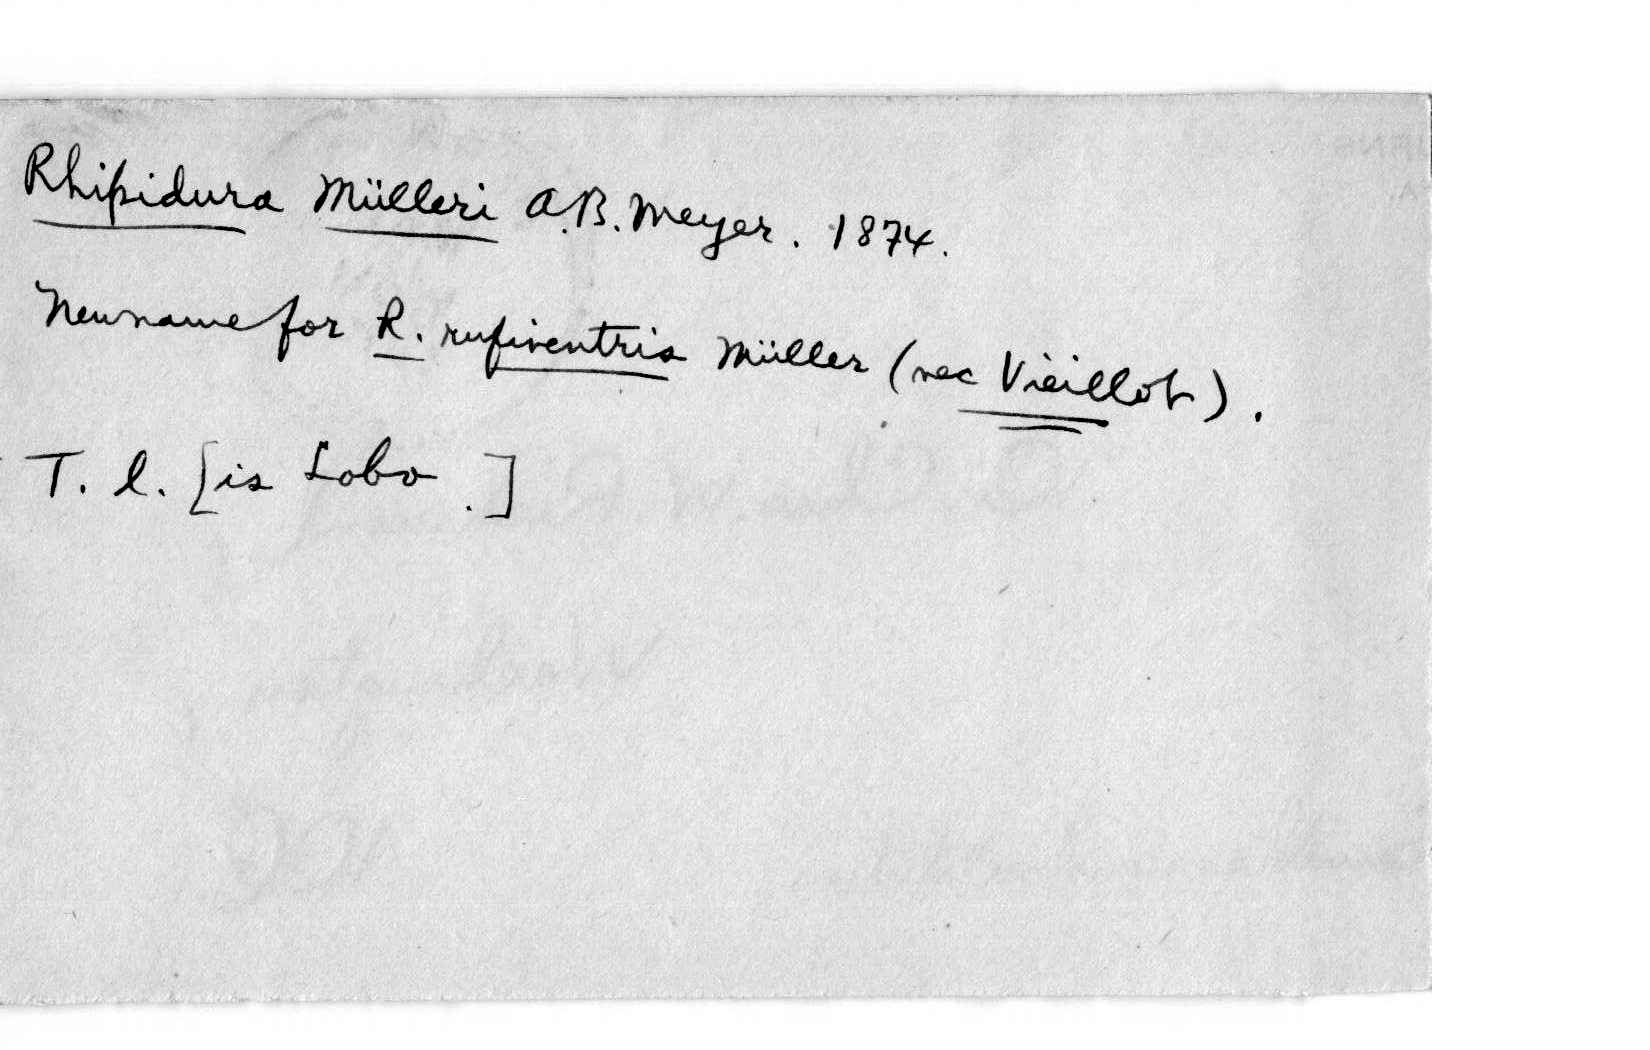 Rhipidura Mülleri A.B. Meyer. 1874.
New name for R. rufiventris Müller (nec Vieillot).
T. l. [is Lobo.]